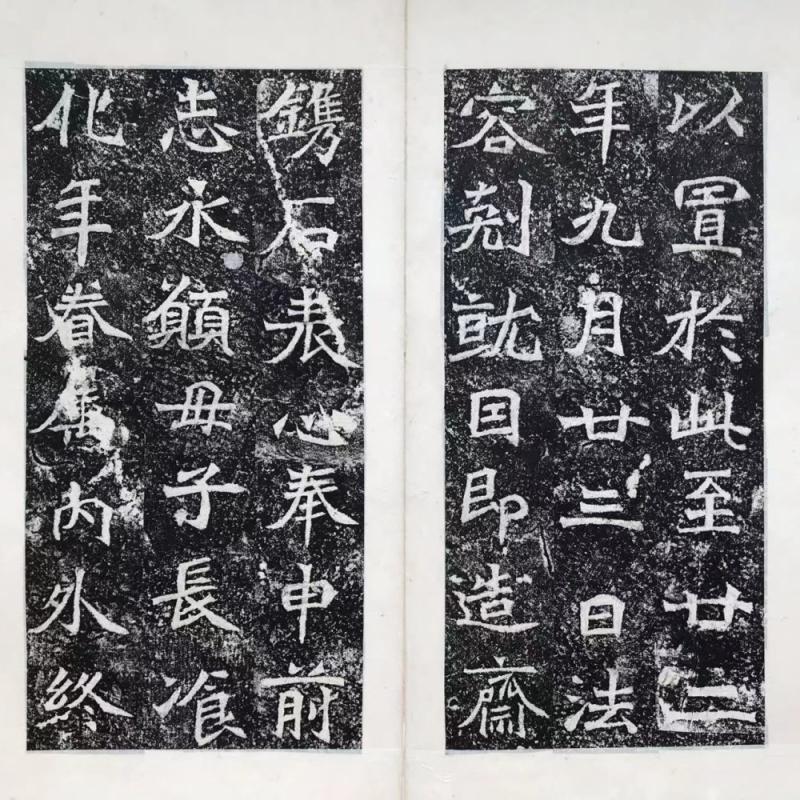 以置於此至廿二
年九月廿三日法
容剋就因即造齋
鐫石表心奉申前
志永願母子長飡
化年眷属内外終